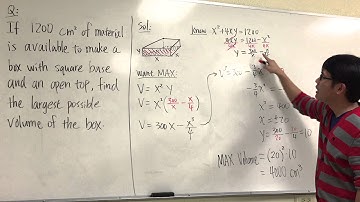 Q:
If 1200 cm² of material
is available to make a
box with square base
and an open top, find
the largest possible
volume of the box.
Sol:
Y
X
X
Want MAX:
V = X² Y
V = X² (300/X - X/4)
V = 300X - X³/4
Know X² + 4XY = 1200
4XY/4X = 1200/4X - X²/4X
Y = 300/X - X/4
X = ±20
Y = 300/20 - 20/4 = 10
MAX Volume = (20)² · 10
= 4000 cm³